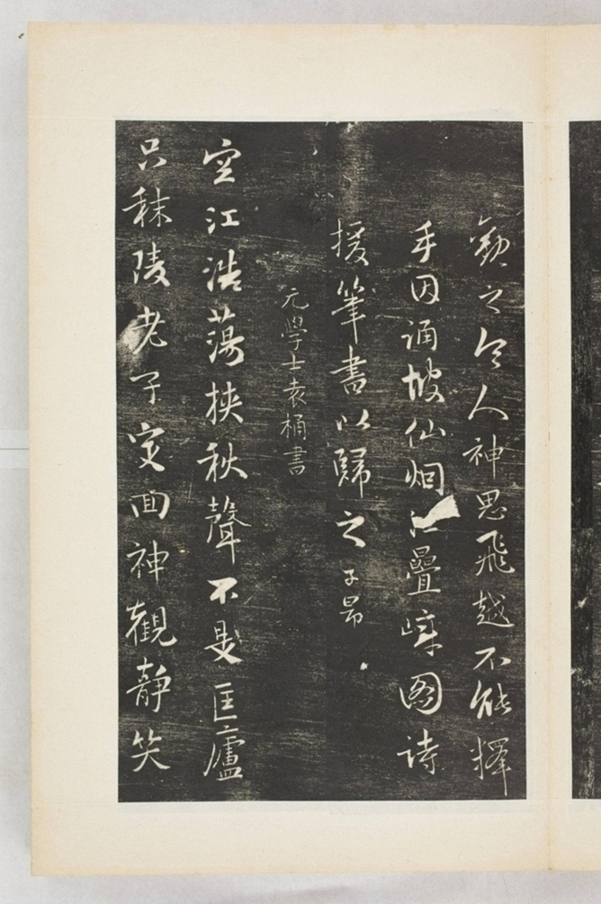 觀之令人神思飛越不能釋
手因誦坡仙烟江疊嶂圖诗
援筆書以歸之子昂
元學士袁桷書
空江浩蕩挾秋聲不是匡廬
只秣陵老子定回神觀靜笑